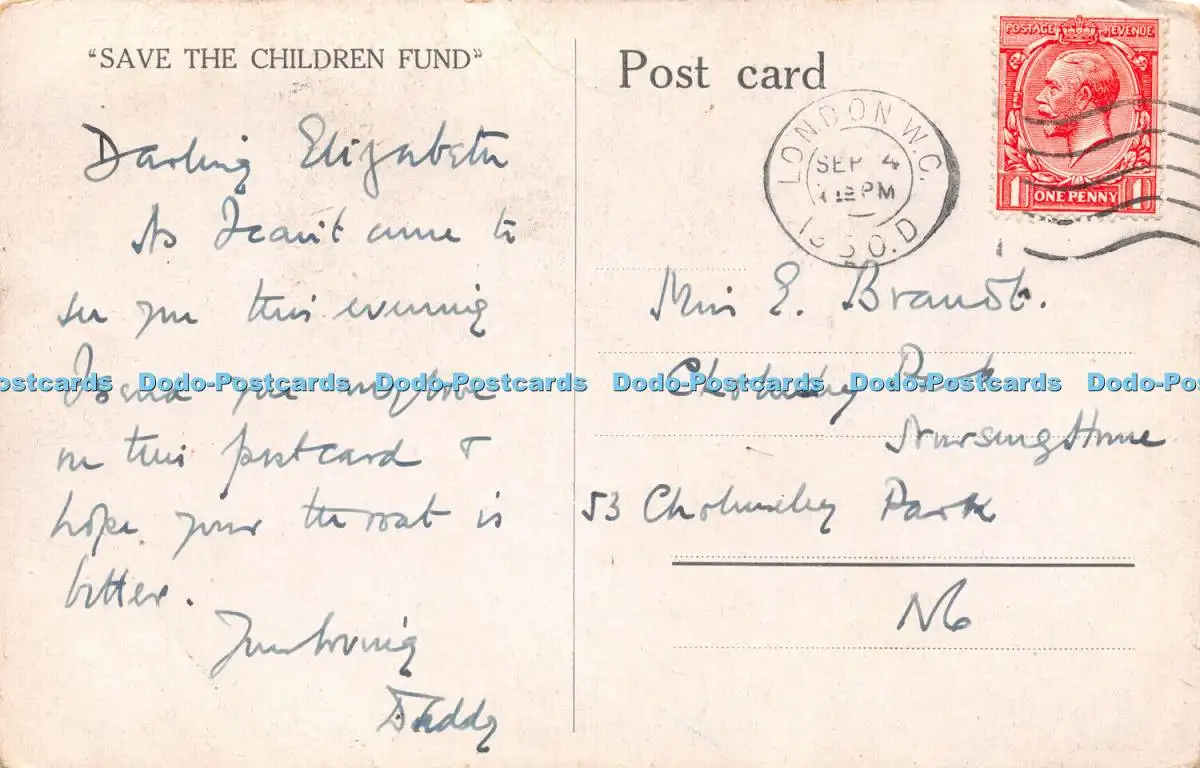 "SAVE THE CHILDREN FUND"
Darling Elizabeth
As I can't come to
see you this evening
I send you my love
on this postcard &
hope your throat is
better.
Your loving
Daddy
Post card
LONDON W.C.
SEP 4
PM
POSTAGE REVENUE
1 ONE PENNY 1
Miss E. Brandt.
Cholmeley Park
Nursing Home
53 Cholmeley Park
N6
Dodo-Postcards Dodo-Postcards Dodo-Postcards Dodo-Postcards Dodo-Postcards